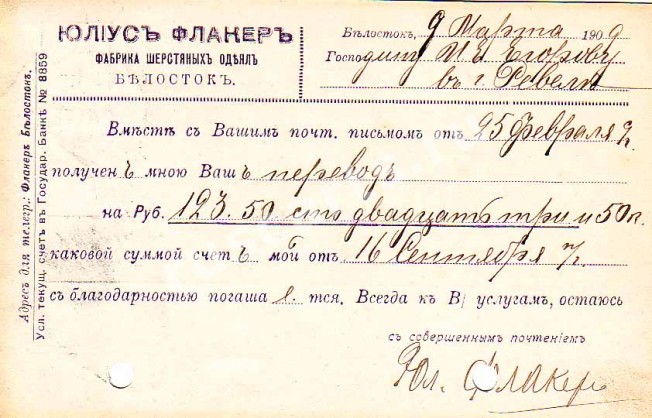 ЮЛІУСЪ ФЛАКЕРЪ
ФАБРИКА ШЕРСТЯНЫХЪ ОДѢЯЛЪ
БѢЛОСТОКЪ.
Бѣлостокъ, 9 Марта 1909
Господину И Я Егорову
въ г. Ревель
Вмѣстѣ съ Вашимъ почт. письмомъ отъ 25 февраля г.
полученъ мною Вашъ переводъ
на Руб. 123.50 сто двадцать три и 50 к.
каковой суммой счетъ мой отъ 16 Сентября г.
съ благодарностью погашается. Всегда къ В/ услугамъ, остаюсь
съ совершеннымъ почтеніемъ
Юл. Флакеръ
Адресъ для телегр.: Флакеръ Бѣлостокъ.
Усл. текущ. счетъ въ Государ. Банкѣ № 8859